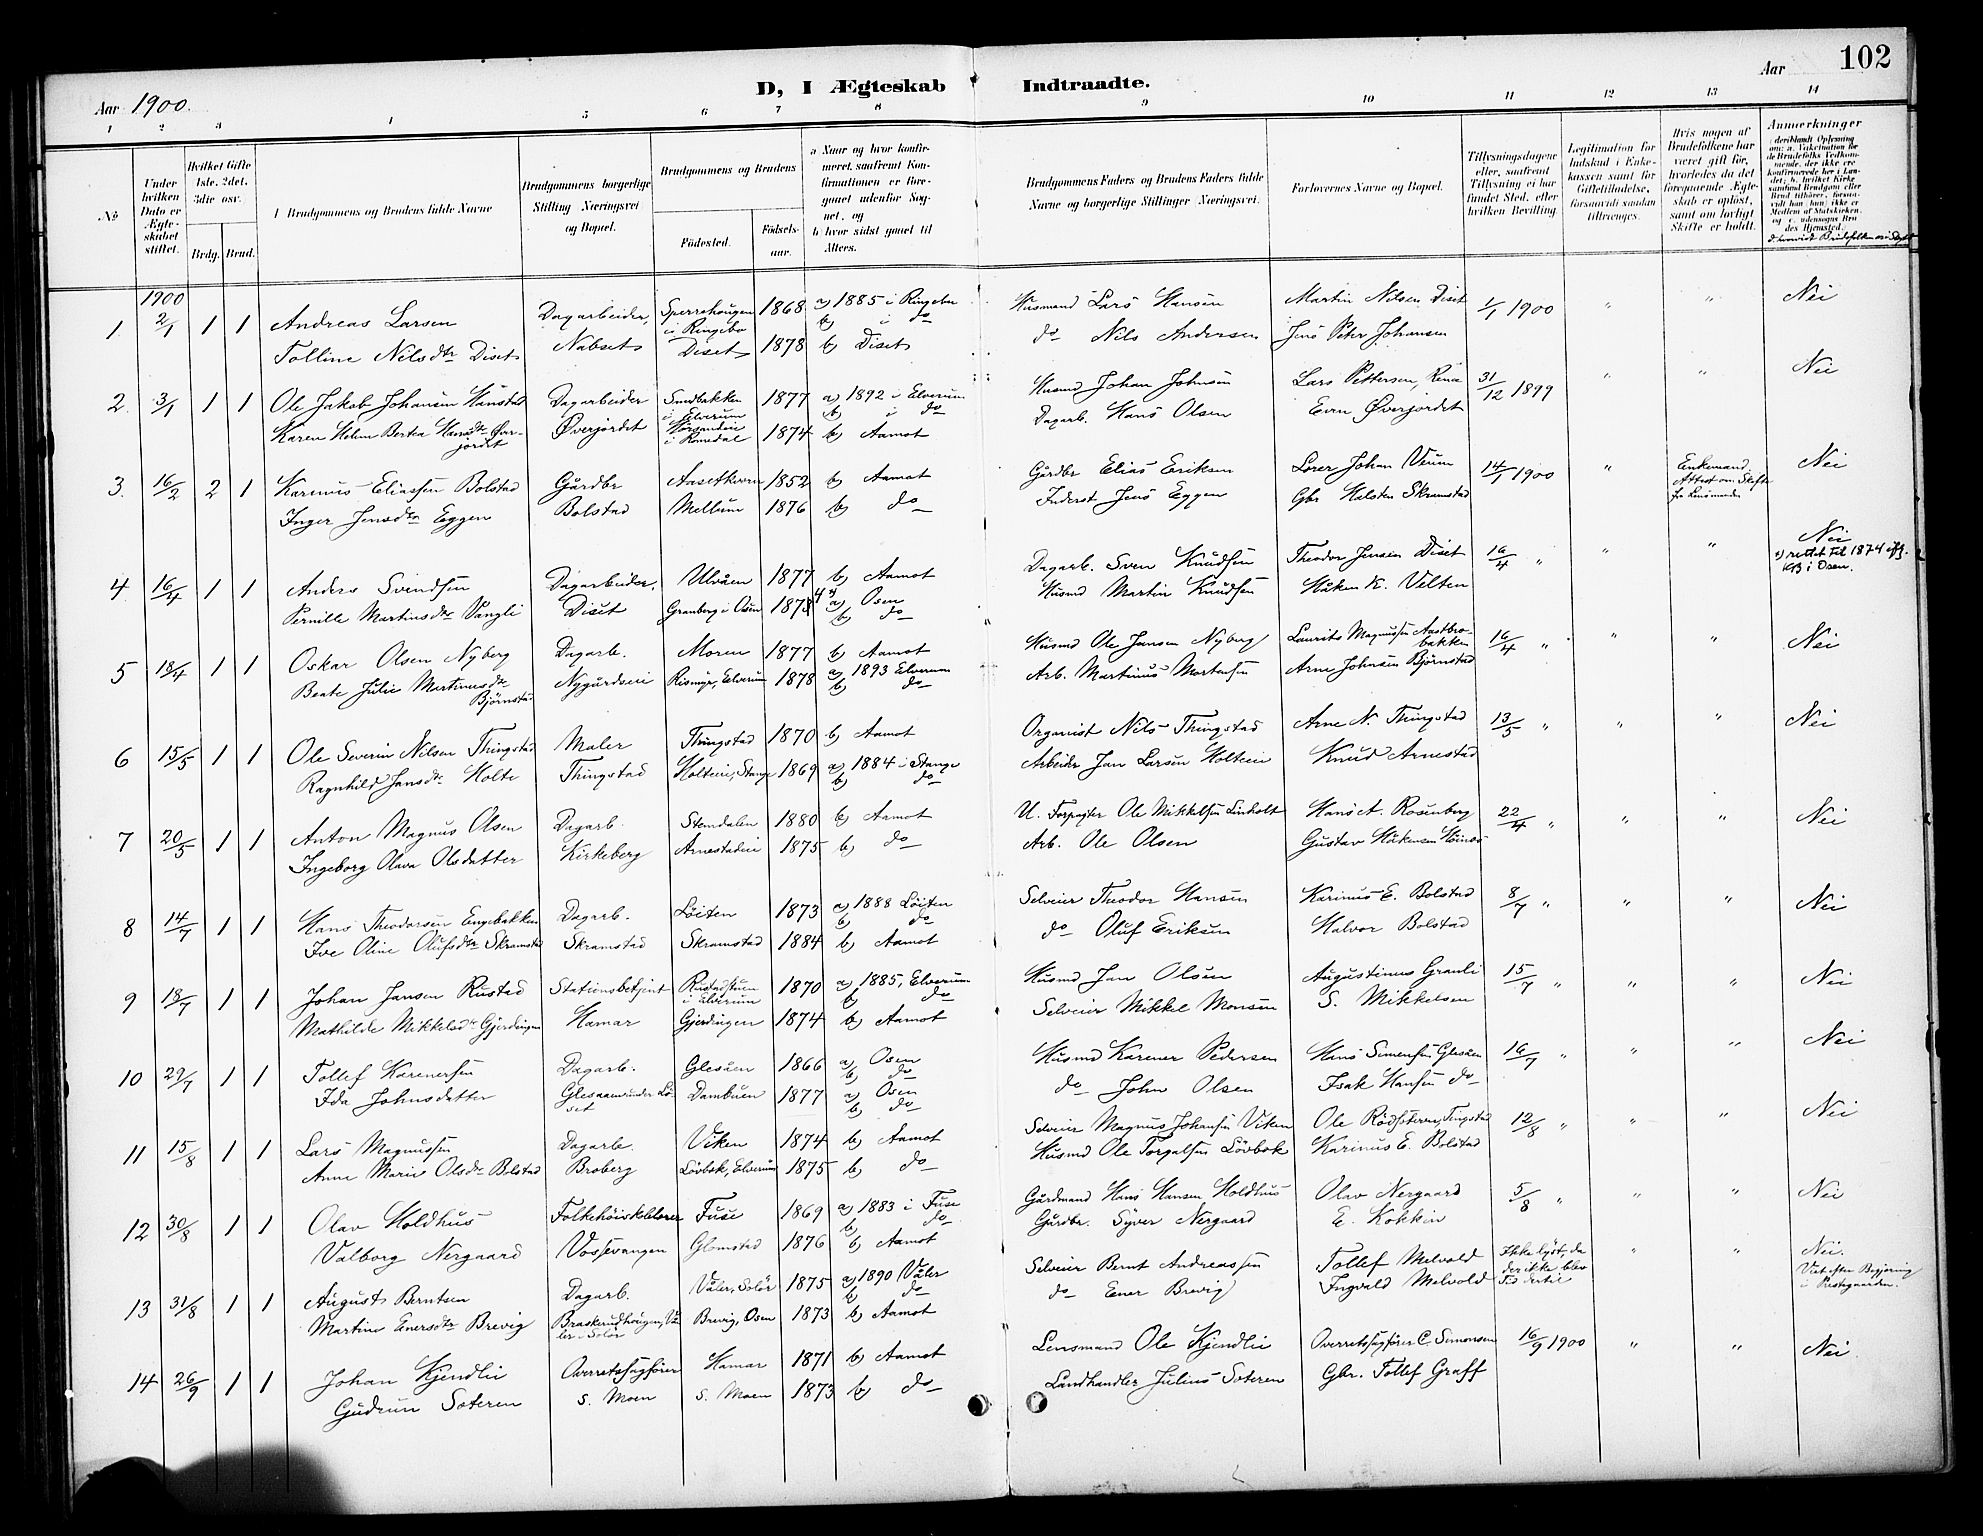 102
D, I Ægteskab Indtraadte.
Aar 1900.
Aar
1 2 3 4 5 6 7 8 9 10 11 12 13 14
No
Under hvilken Dato er Ægteskabet stiftet.
Hvilket Gifte 1ste, 2det, 3die osv.
Brdg. Brud.
Brudgommens og Brudens fulde Navne
Brudgommens borgerlige Stilling Næringsvei og Bopæl.
Brudgommens og Brudens
Fødested.
Fødselsaar.
a Naar og hvor konfirmeret, saafremt Konfirmationen er foregaaet udenfor Sognet, og
b hvor sidst gaaet til Alters.
Brudgommens Faders og Brudens Faders fulde Navne og borgerlige Stillinger (Næringsvei.
Forlovernes Navne og Bopæl.
Tillysningsdagene eller, saafremt Tillysning ei har fundet Sted, efter hvilken Bevilling.
Legitimation for Indskud i Enkekassen samt for Giftetilladelse, forsaavidt saadan tiltrænges.
Hvis nogen af Brudefolkene har været gift før, hvorledes da det foregaaende Ægteskab er opløst, samt om lovligt Skifte er holdt.
Anmerkninger
1900
1. 2/1 1 1 Andreas Larsen Dagarbeider, Sperrehaugen i Ringebo 1868 a) 1885 i Ringebu b) i do Husmand Lars Hansen Martin Nilsen, Diset 1/1 1900 " " Nei
Tolline Nilsdtr Diset Nabset Diset 1878 b) Diset do Nils Andersen Jens Peter Johansen
2. 3/1 1 1 Ole Jakob Johansen Hanstad Dagarbeider Sundbakken i Elverum 1877 a) 1892 i Elverum b) i do Husmd Johan Johnsen Lars Pettersen, Rena 31/12 1899 " " Nei
Karen Helene Bertea Hansdtr Øverjordet Øverjordet i Romedal 1874 b) Aamot Dagarb. Hans Olsen Even Øverjordet
3. 16/2 2 1 Karinus Eliassen Bolstad Gårdbr Aasetkvern 1852 b) Aamot Gårdbr Elias Eriksen Lærer Johan Veum 14/1 1900 " Enkemand Attest om Skifte fr Lensmanden Nei
Inger Jensdtr Eggen Bolstad Mellum 1876 b) do Inderst Jens Eggen Gbr Halsten Skramstad
4 16/4 1 1 Anders Svendsen Dagarbeider, Ulvåen 1877 b) Aamot Dagarb. Sven Knudsen Theodor Jensen Diset 16/4 " " " Nei
x) rettet til 1874 iflg. KB i Osen.
Pernille Martinsdtr Vangli Diset Granberg i Osen 1878 4 x) a) Osen b) do Husmd Martin Knudsen Håken K. Velten
5 18/4 1 1 Oskar Olsen Nyberg Dagarb. Moren 1877 b) Aamot Husmd Ole Jansen Nyberg Laurits Magnussen Aastbrobakken 16/4 " " " Nei
Beate Julie Martinusdtr Bjørnstad Nygårdseie Rismyr, Elverum 1878 a) 1893 Elverum b) do Arb. Martinus Mortensen Arne Johnsen Bjørnstad
6 15/5 1 1 Ole Severin Nilsen Thingstad Maler Thingstad 1870 b) Aamot Organist Nils Thingstad Arne N. Thingstad 13/5 " " " Nei
Ragnhild Jansdtr Holte Thingstad Holteie, Stange 1869 a) 1884 i Stange b) do Arbeider Jan Larsen Holteie Knud Arnestad
7 20/5 1 1 Anton Magnus Olsen Dagarb. Stendalen 1880 b) Aamot U. Forpagter Ole Mikkelsen Linholt Hans A. Rosenberg 22/4 " " " Nei
Ingeborg Olava Olsdatter Kirkeberg Arnestadeie 1875 b) do Arb. Ole Olsen Gustav Håkensen
8 14/7 1 1 Hans Theodorsen Engebakken Dagarb. Løiten 1873 a) 1888 Løiten b) do Selveier Theodor Hansen Karinus E. Bolstad 8/7 " " " Nei
Ive Oline Olufsdtr Skramstad Skramstad Skramstad 1884 b) Aamot do Oluf Eriksen Halvor Bolstad
9 18/7 1 1 Johan Jansen Rustad Stationsbetjent Rustadstuen i Elverum 1870 a) 1885, Elverum b) do Husmd Jan Olsen Augustinus Granli 15/7 " " " Nei
Mathilde Mikkelsdtr Gjerdingen Hamar Gjerdingen 1874 b) Aamot Selveier Mikkel Monsen S. Mikkelsen
10 29/7 1 1 Tollef Karenersen Dagarb. Glesåen 1866 a) Osen b) do Husmd Karener Pedersen Hans Simensen Glesåen 16/7 " " " Nei
Ida Johnsdatter Glesaaen under Løset Dambuen 1877 a) Osen b) do do John Olsen Isak Hansen do
11 15/8 1 1 Lars Magnussen Dagarb. Viken 1874 b) Aamot Selveier Magnus Johansen Viken Ole Rødsæteren, Tingstad 12/8 " " " Nei
Anne Marie Olsdtr Bolstad Broberg Løvbek, Elverum 1875 b) do Husmd Ole Torgalsen Løvbek Karinus E. Bolstad
12 30/8 1 1 Olav Holdhus Folkehøiskolelærer Fuse 1869 a) 1883 i Fuse b) do Gårdmand Hans Hansen Holdhus Olav Nergaard 5/8 " " " Nei
Valborg Nergaard Vossevangen Glomstad 1876 b) Aamot Gårdbr. Syver Nergaard E. Kokkin
13 31/8 1 1 August Berntsen Dagarb. Våler, Solør 1875 a) 1890 Våler b) do Selveier Bernt Andreassen Tollef Melvold Ikke lyst, da der ikke blev Tid dertil " " Nei. Viet efter Begjæring i Prestegaarden.
Martine Enersdtr Brevig Braskerudhaugen, Våler i Solør Brevig, Osen 1873 b) Aamot do Ener Brevig Ingvald Melvold
14 26/9 1 1 Johan Kjendlie Overretssagfører Hamar 1871 b) Aamot Lensmand Ole Kjendlie Overretssagfører C. Simonsen 16/9 1900 " " Nei
Gudrun Sæteren S. Moen S. Moen 1873 b) do Landhandler Julius Sæteren Gbr. Tollef Graff